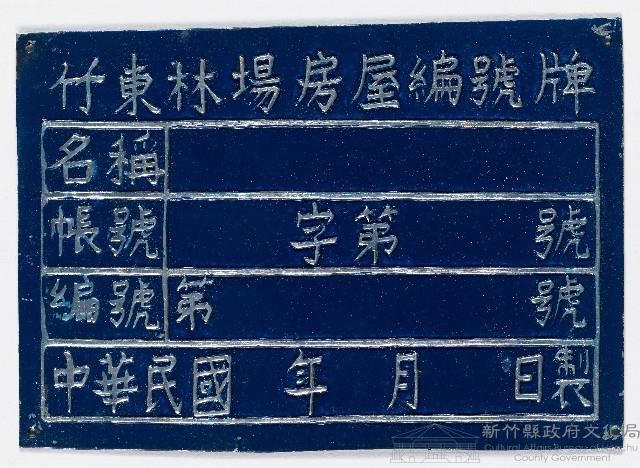 竹東林場房屋編號牌
名稱
帳號 字第 號
編號 第 號
中華民國 年 月 日製
新竹縣政府文化局
Cultural Affairs Bureau of Hsinchu
County Government